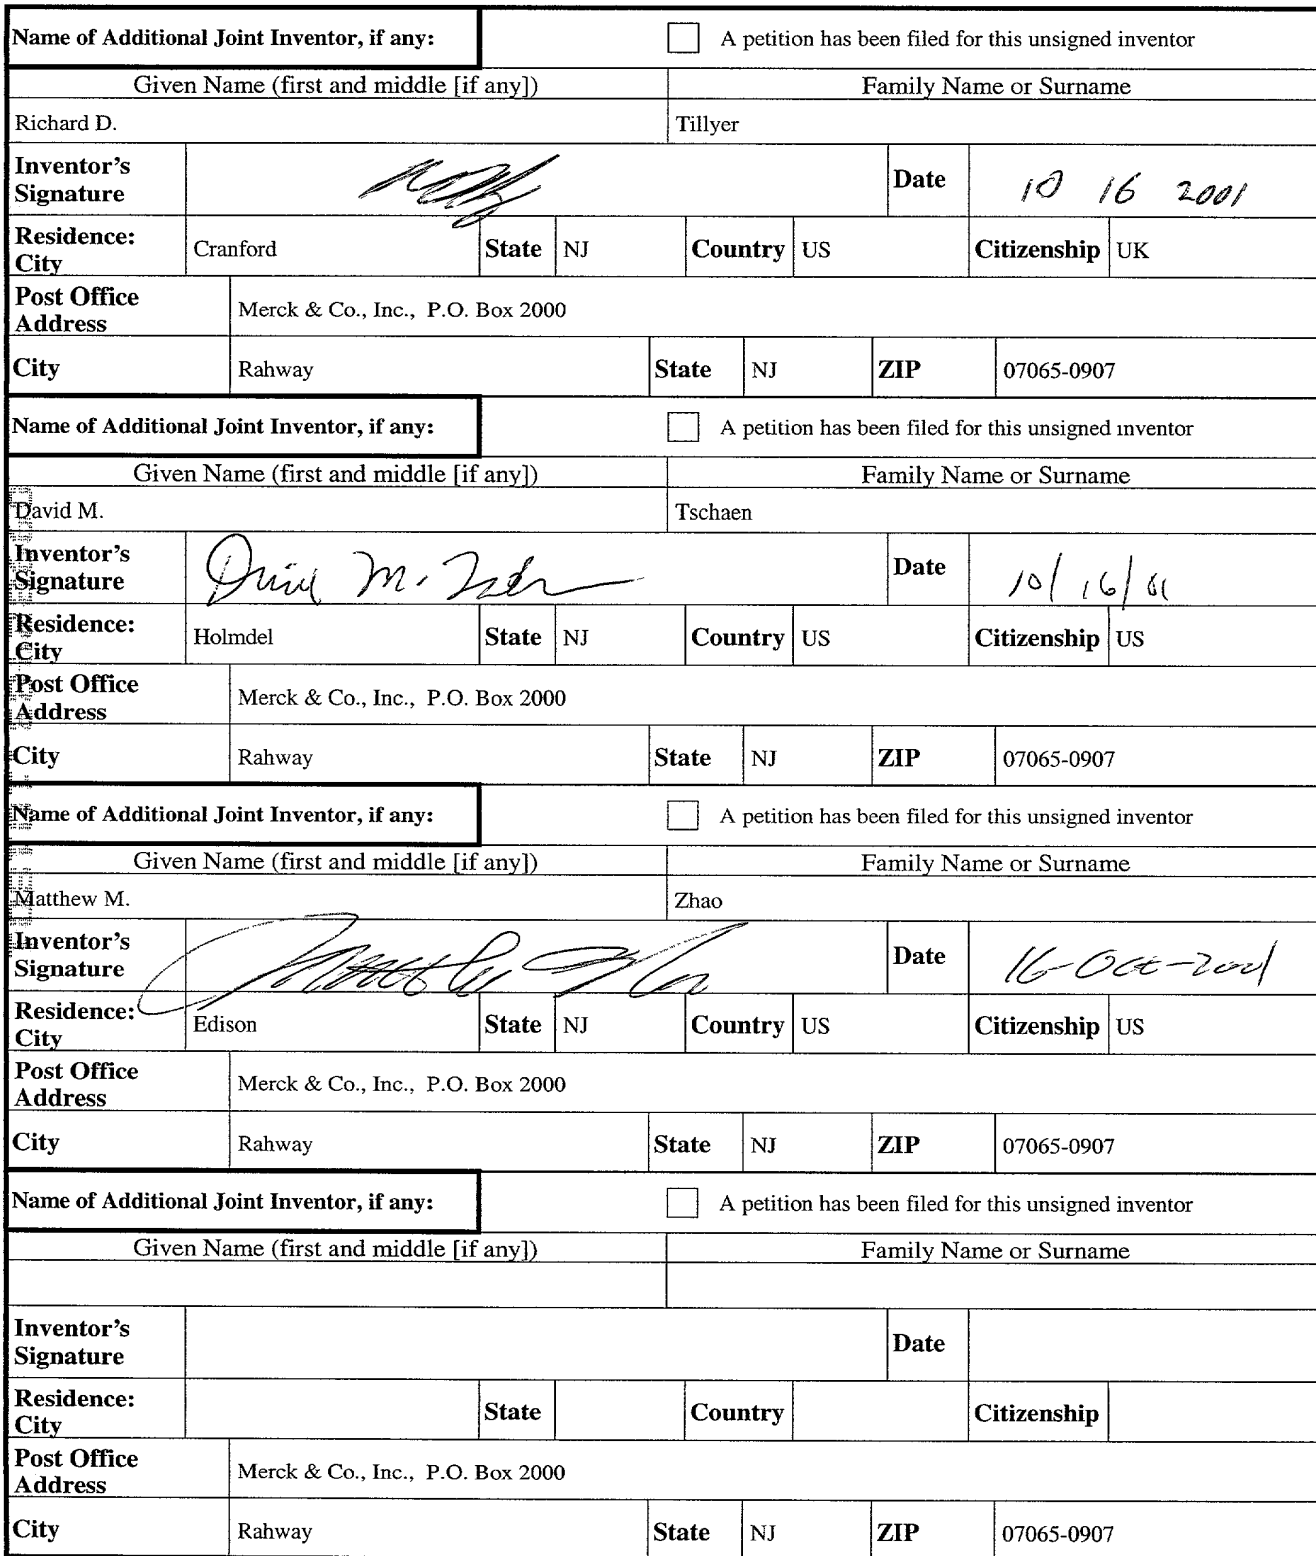 Name of Additional Joint Inventor, if any: A petition has been filed for this unsigned inventor
Given Name (first and middle [if any]) Family Name or Surname
Richard D. Tillyer
Inventor's Signature Date 10 16 2001
Residence: City Cranford State NJ Country US Citizenship UK
Post Office Address Merck & Co., Inc., P.O. Box 2000
City Rahway State NJ ZIP 07065-0907
Name of Additional Joint Inventor, if any: A petition has been filed for this unsigned inventor
Given Name (first and middle [if any]) Family Name or Surname
David M. Tschaen
Inventor's Signature David M. Tschaen Date 10/16/01
Residence: City Holmdel State NJ Country US Citizenship US
Post Office Address Merck & Co., Inc., P.O. Box 2000
City Rahway State NJ ZIP 07065-0907
Name of Additional Joint Inventor, if any: A petition has been filed for this unsigned inventor
Given Name (first and middle [if any]) Family Name or Surname
Matthew M. Zhao
Inventor's Signature Matthew Zhao Date 16-Oct-2001
Residence: City Edison State NJ Country US Citizenship US
Post Office Address Merck & Co., Inc., P.O. Box 2000
City Rahway State NJ ZIP 07065-0907
Name of Additional Joint Inventor, if any: A petition has been filed for this unsigned inventor
Given Name (first and middle [if any]) Family Name or Surname
Inventor's Signature Date
Residence: City State Country Citizenship
Post Office Address Merck & Co., Inc., P.O. Box 2000
City Rahway State NJ ZIP 07065-0907